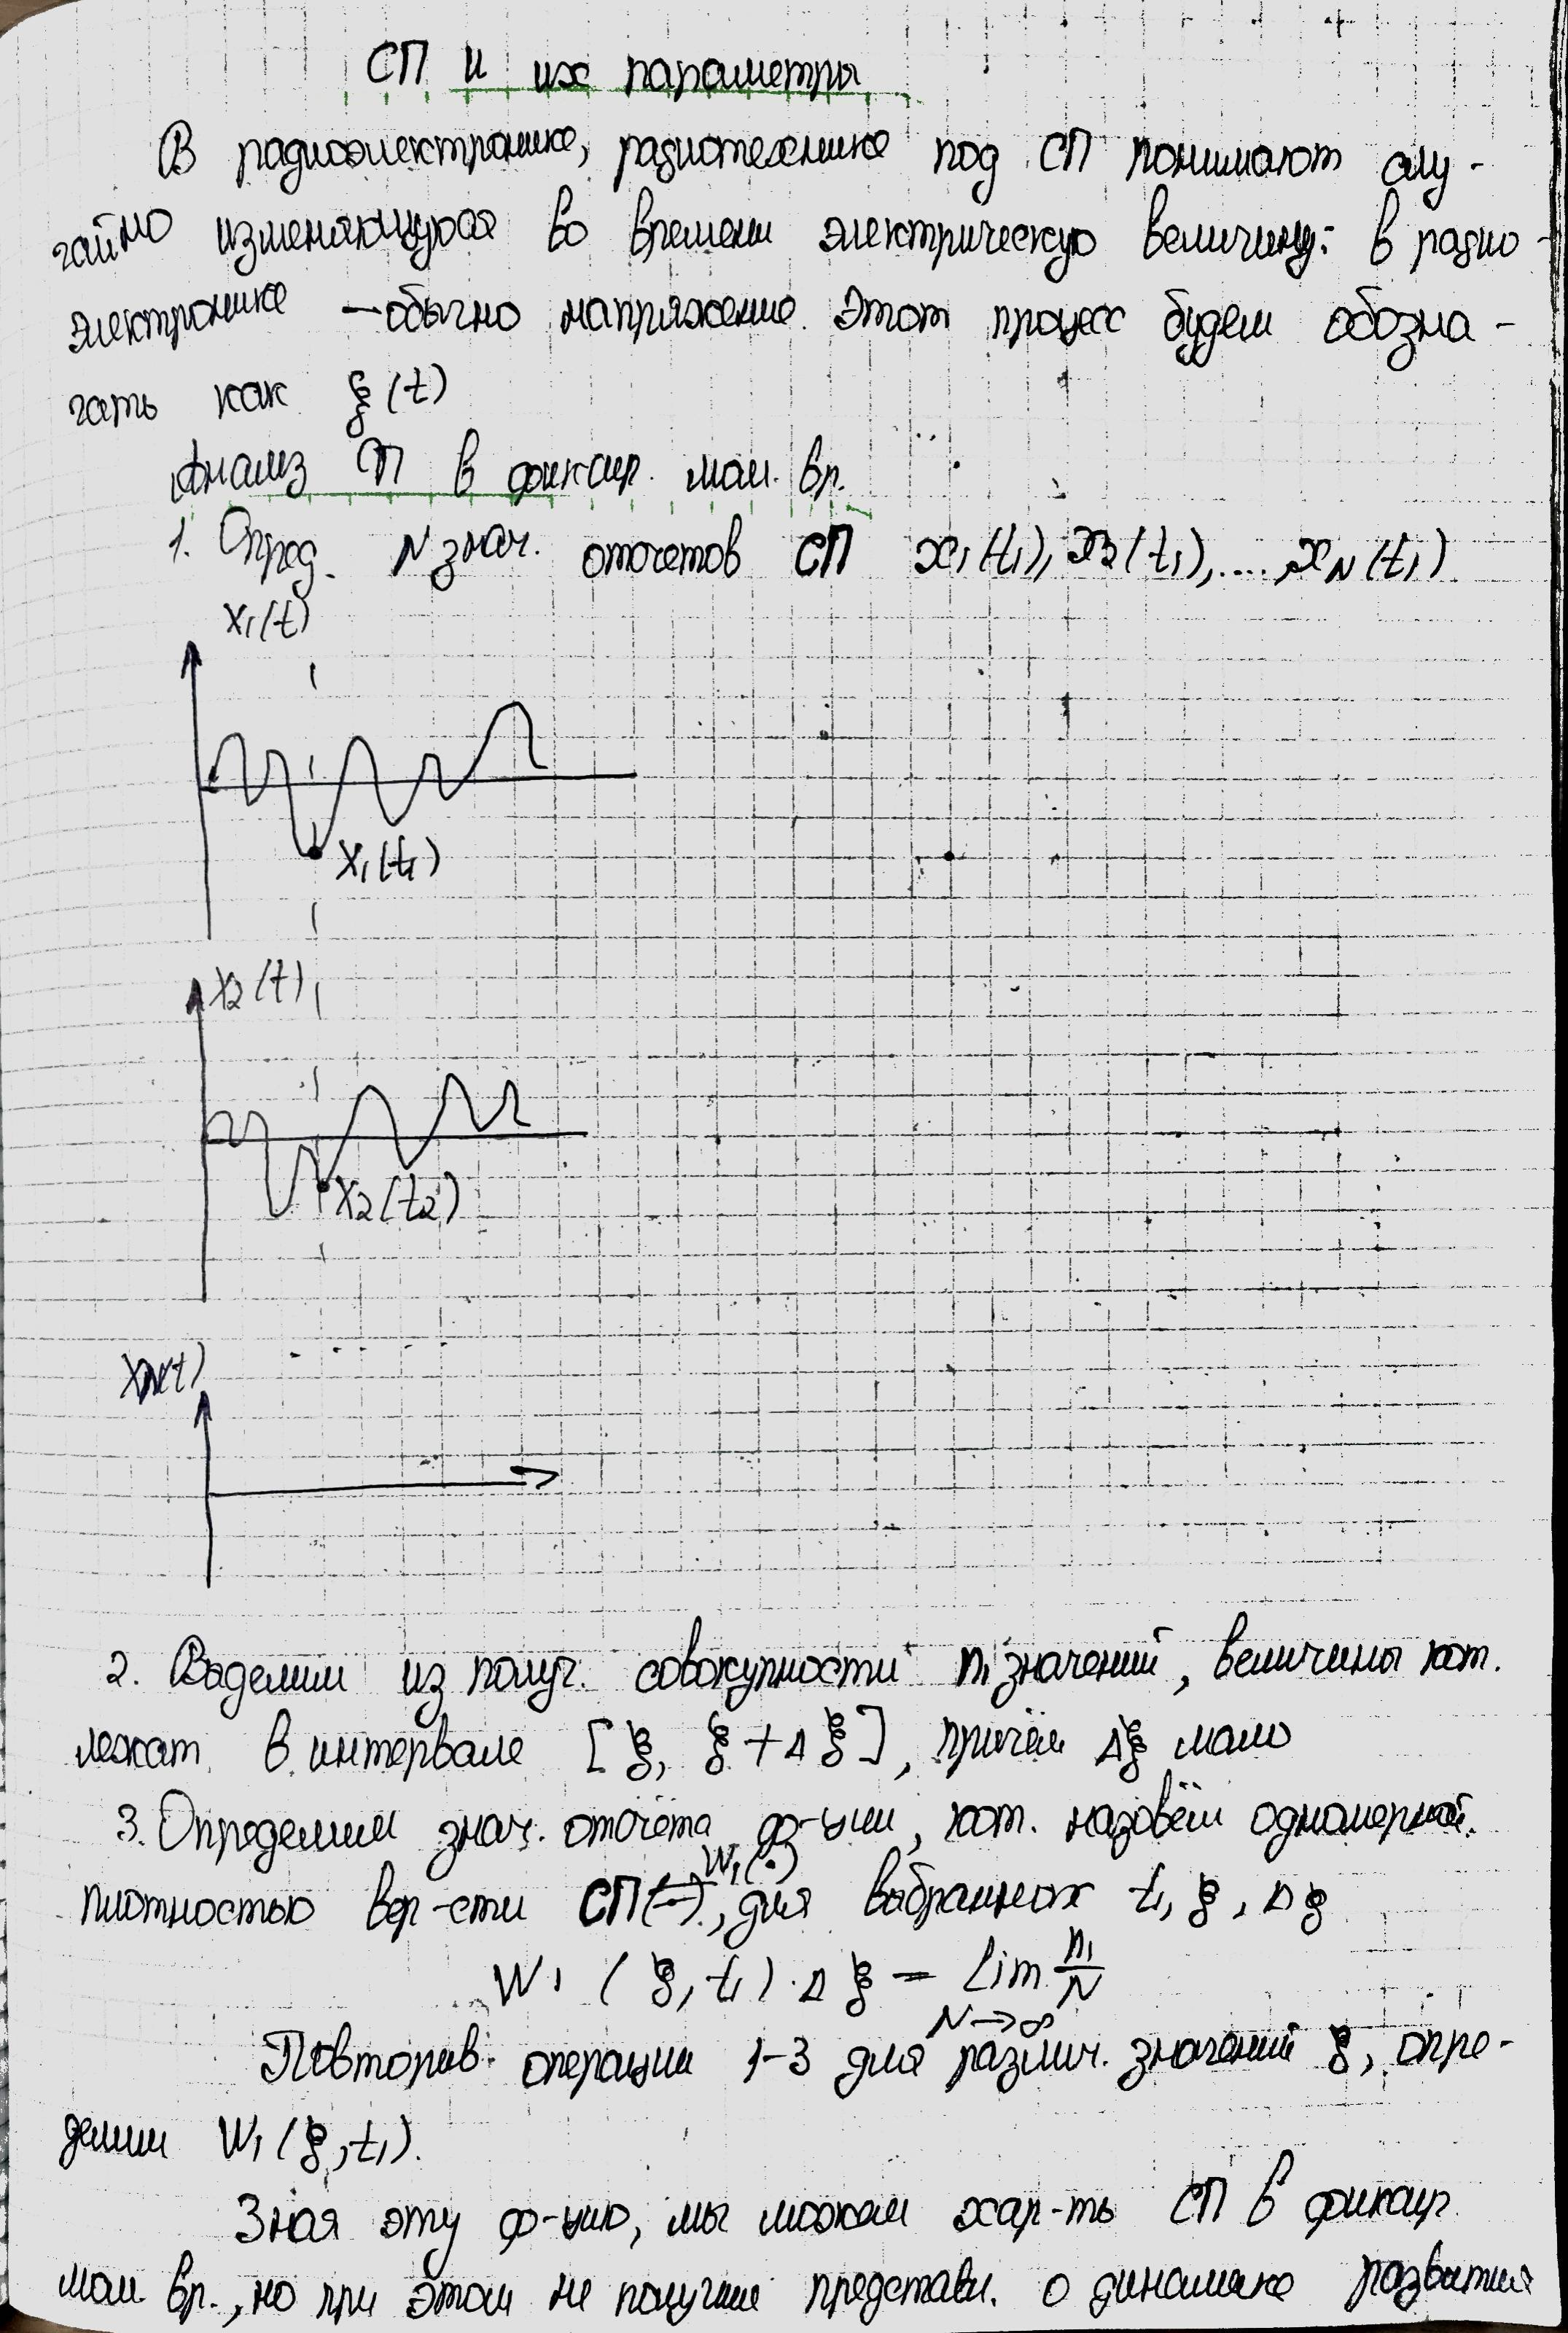 СП и их параметры
В радиоэлектронике, радиотехнике под СП понимают слу-
чайно изменяющуюся во времени электрическую величину: в радио-
электронике — обычно напряжение. Этот процесс будем обозна-
чать как ξ(t)
Анализ СП в фиксир. мом. вр.
1. Опред. N знач. отсчетов СП x1(t1), x2(t1), ...., xN(t1)
x1(t)
x1(t1)
x2(t)
x2(t2)
xN(t)
2. Выделим из получ. совокупности n1 значений, величины кот.
лежат в интервале [ξ, ξ+Δξ], причём Δξ мало
3. Определим знач. отсчёта ф-ции, кот. назовём одномерной
W1(·)
плотностью вер-сти СП, для выбранных t1, ξ, Δξ
W1 (ξ, t1) · Δξ = lim n1/N
N→∞
Повторив операции 1-3 для различ. значений ξ, опре-
делим W1(ξ, t1).
Зная эту ф-цию, мы можем хар-ть СП в фиксир.
мом. вр., но при этом не получим представ. о динамике развития